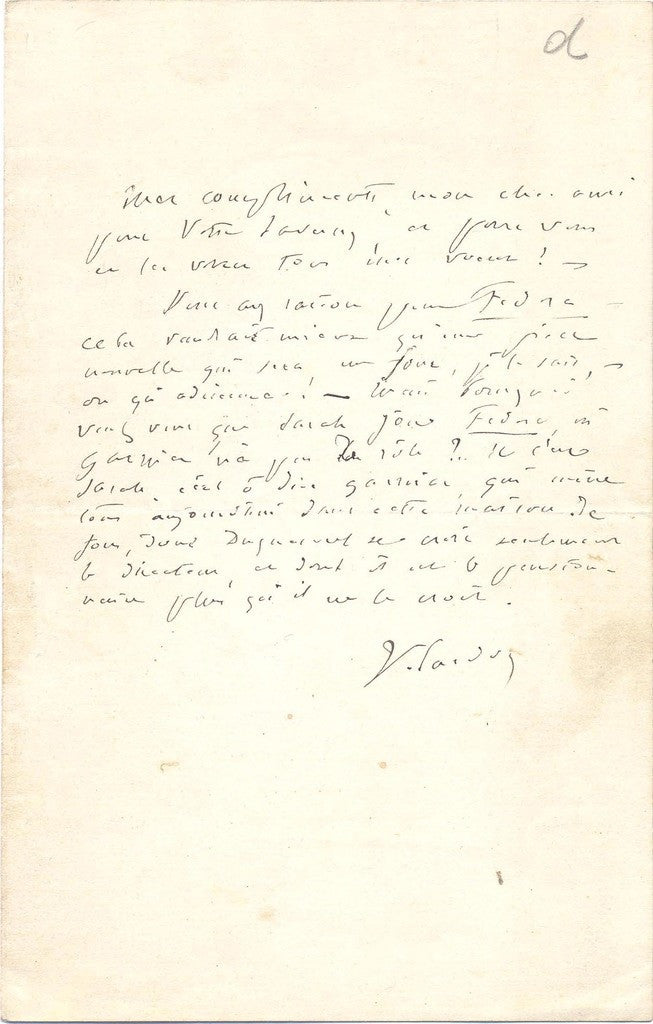 d
Mes compliments, mon cher ami
pour Votre et pour vous
en les vôtres Tous mes voeux !
Vous avez raison pour Fedora
cela vaudrait mieux qu'une pièce
nouvelle qui sera, un four, je le sais,
on qu'a ! — Mais Pourquoi
voulez vous que Sarah joue Fedora, où
Garnier n'a pas de rôle ? .. Si c'est
Sarah, c'est à dire Garnier, qui mène
tout aujourd'hui dans cette maison de
fous, dont Duquesnel se croit seulement
le directeur, et dont il est le pension-
naire plus qu'il ne le croit.
V. Sardou